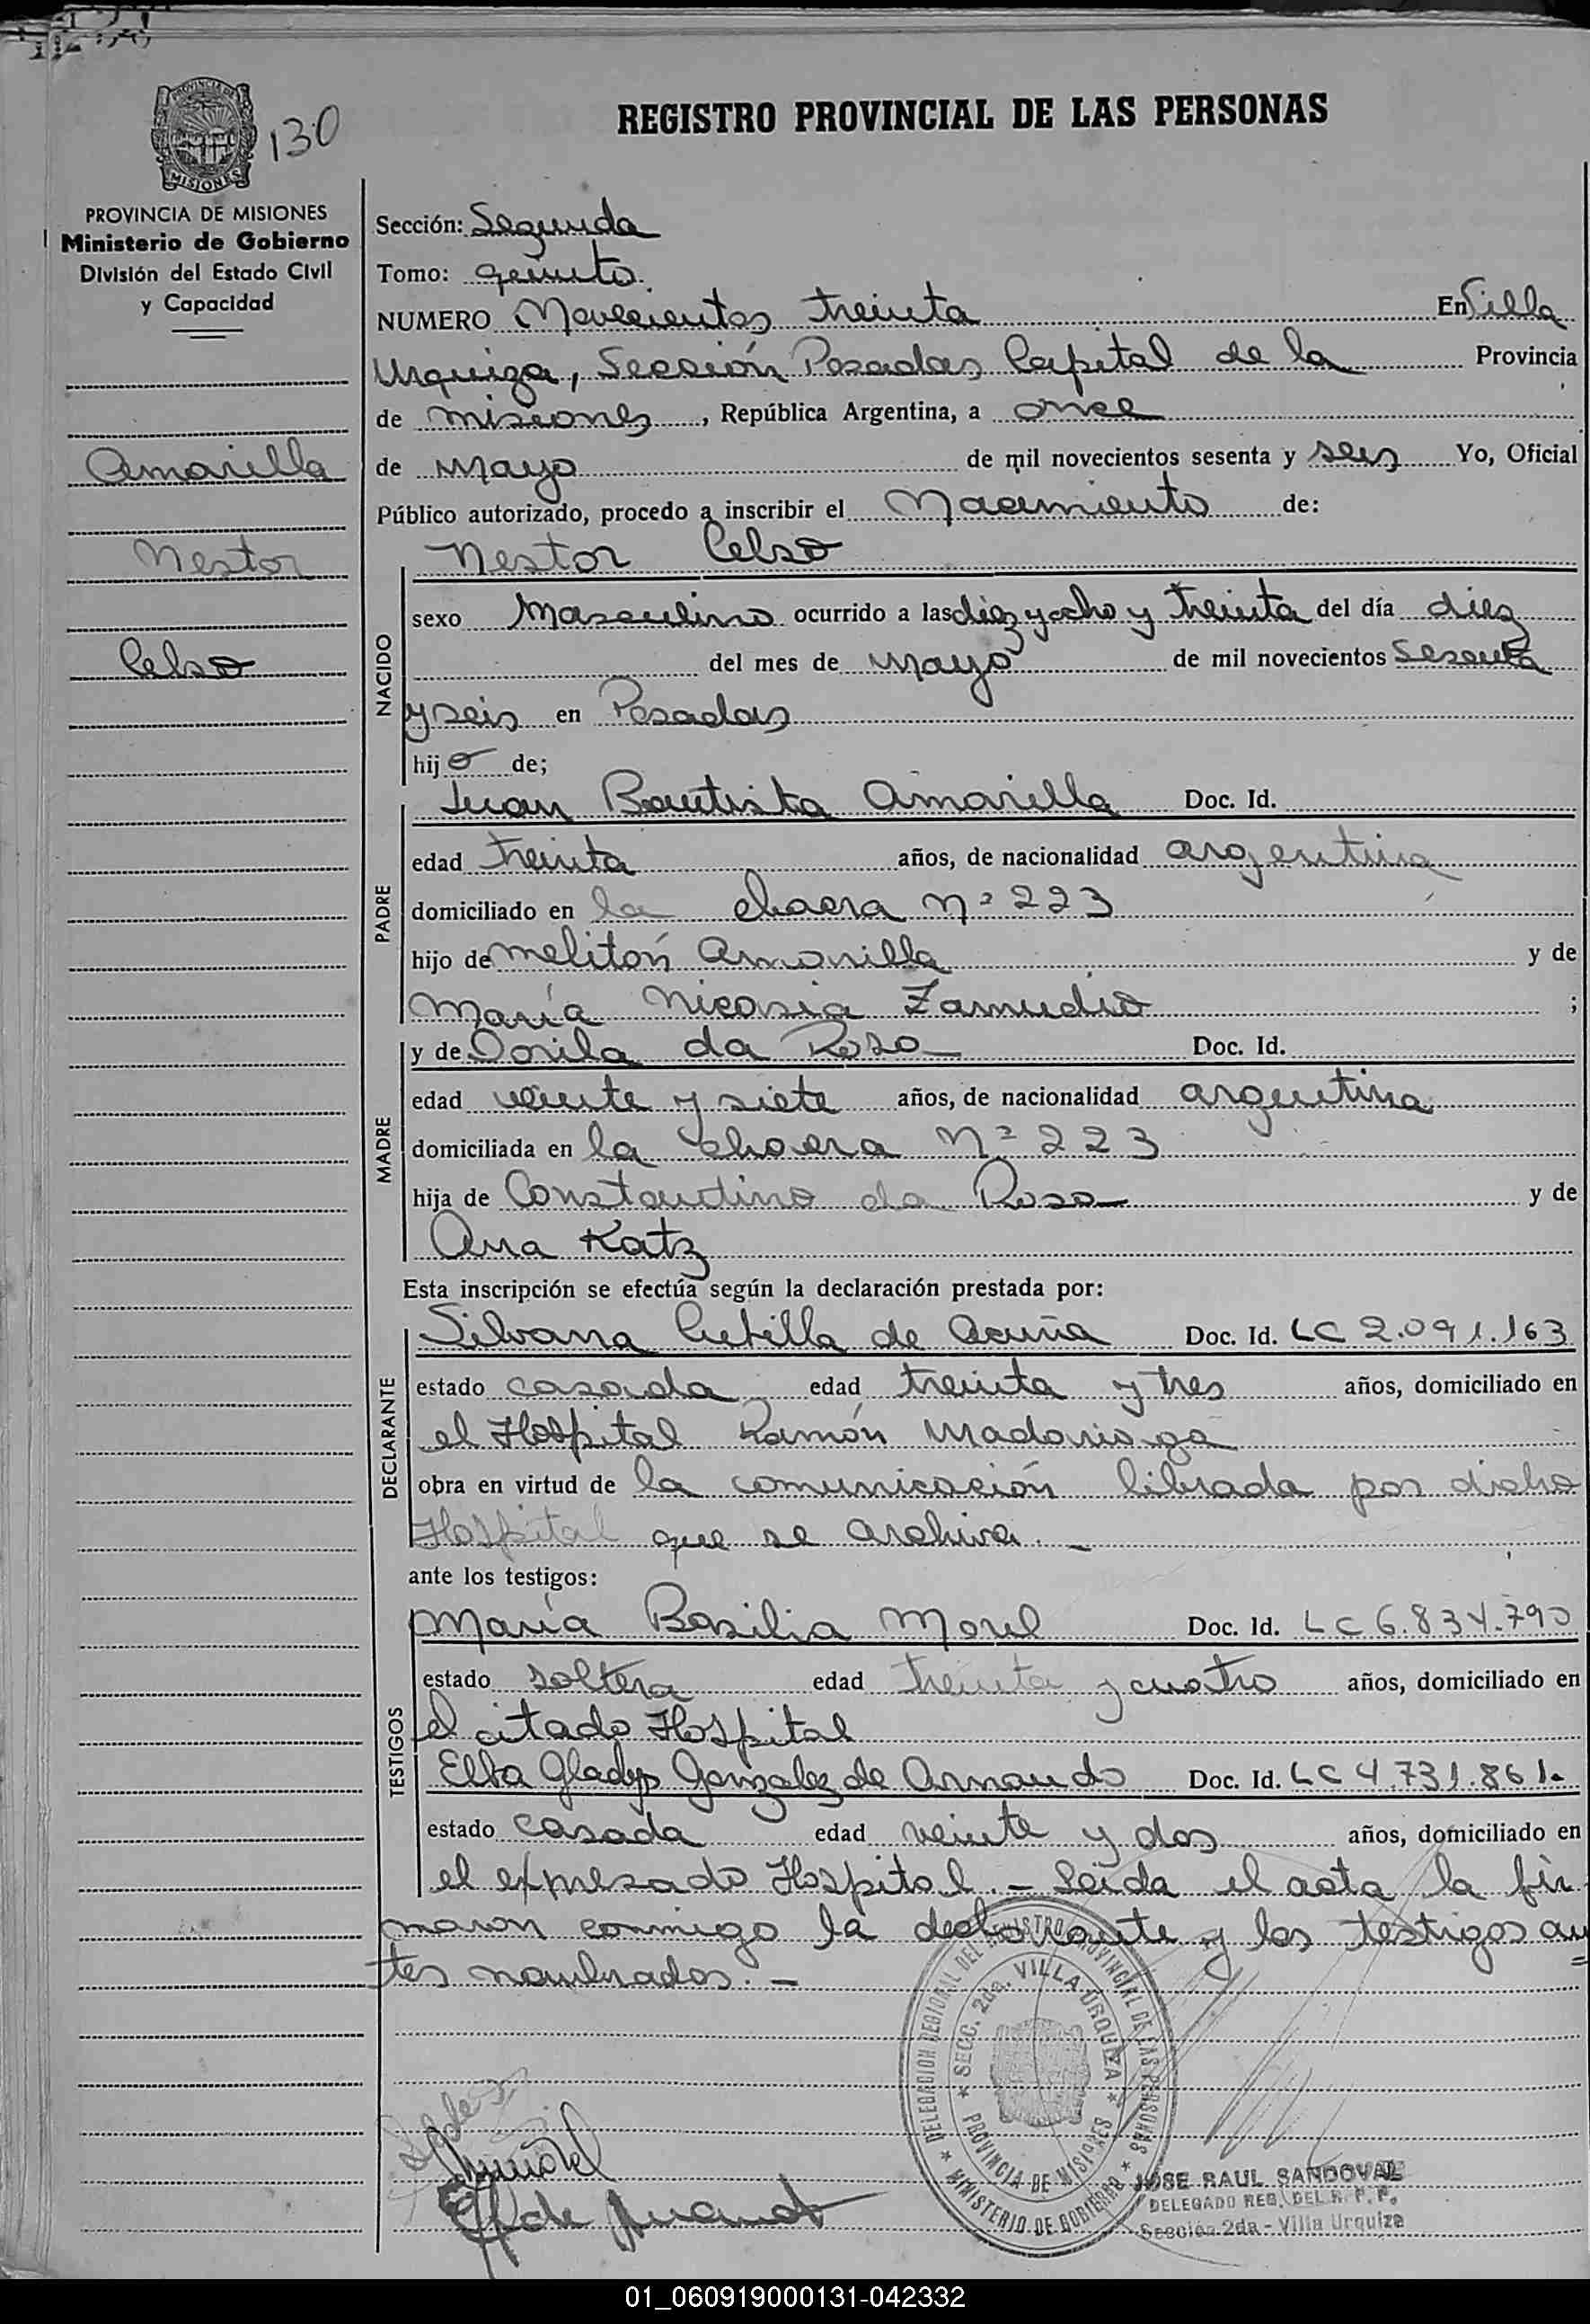 130
REGISTRO PROVINCIAL DE LAS PERSONAS
PROVINCIA DE MISIONES
Ministerio de Gobierno
División del Estado Civil
y Capacidad
Amarilla
Nestor
Celso
Sección: Segunda
Tomo: Quinto.
NUMERO Novecientos treinta En Villa
Urquiza, Sección Posadas Capital de la Provincia
de Misiones, República Argentina, a once
de mayo de mil novecientos sesenta y seis Yo, Oficial
Público autorizado, procedo a inscribir el Nacimiento de:
NACIDO
Nestor Celso
sexo Masculino ocurrido a las diez y ocho y treinta del día diez
del mes de mayo de mil novecientos sesenta
y seis en Posadas
hijo de;
PADRE
Juan Bautista Amarilla Doc. Id.
edad treinta años, de nacionalidad argentina
domiciliado en la chacra nº 223
hijo de Melitón Amarilla y de
María Nicasia Zamudio ;
MADRE
y de Dorila da Rosa Doc. Id.
edad veinte y siete años, de nacionalidad argentina
domiciliada en la chacra nº 223
hija de Constantino da Rosa y de
Ana Katz
Esta inscripción se efectúa según la declaración prestada por:
DECLARANTE
Silvana de Acuña Doc. Id. LC 2.091.163
estado casada edad treinta y tres años, domiciliado en
el Hospital Ramón Madariaga
obra en virtud de la comunicación librada por dicho
Hospital que se archiva. -
ante los testigos:
TESTIGOS
María Basilia Morel Doc. Id. LC 6.834.790
estado soltera edad treinta y cuatro años, domiciliado en
el citado Hospital
Elba Gladys Gonzalez de Armando Doc. Id. LC 4.731.861.
estado casada edad veinte y dos años, domiciliado en
el expresado Hospital. - Leída el acta la fir
maron conmigo la declarante y los testigos an
tes nombrados. -
DELEGACION REGIONAL DEL REGISTRO PROVINCIAL DE LAS PERSONAS
MINISTERIO DE GOBIERNO
SECC. 2da. VILLA URQUIZA
PROVINCIA DE MISIONES
JOSE RAUL SANDOVAL
DELEGADO REG. DEL R. P. P.
Sección 2da - Villa Urquiza
01_060919000131-042332